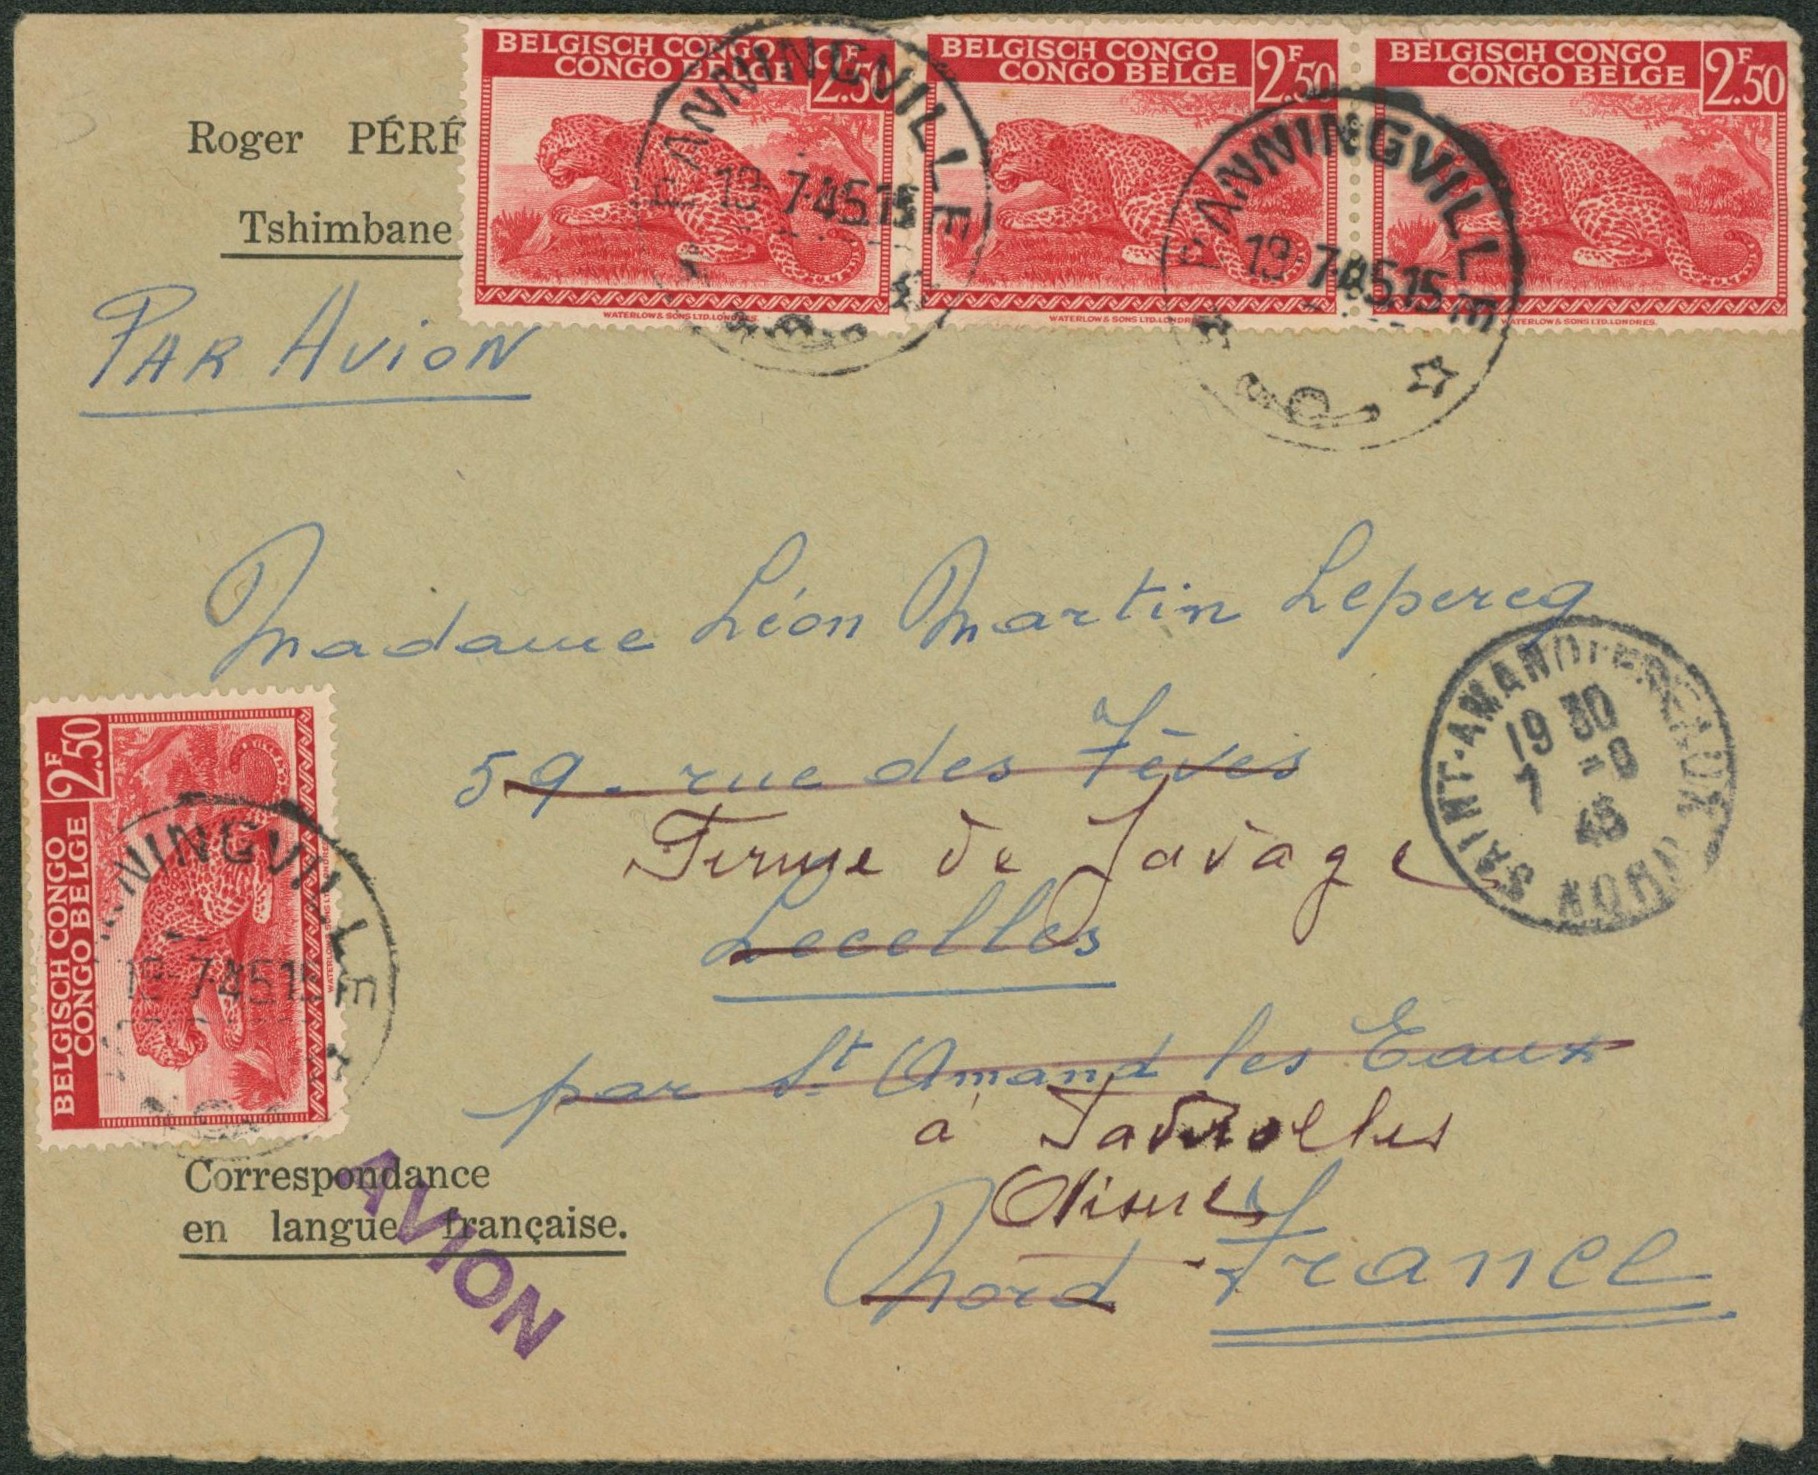 BELGISCH CONGO
CONGO BELGE
2.50
BELGISCH CONGO 2F.50
CONGO BELGE
BELGISCH CONGO 2F.50
CONGO BELGE
WATERLOW & SONS LTD. LONDRES.
WATERLOW & SONS LTD. LONDRES.
WATERLOW & SONS LTD. LONDRES.
BANNINGVILLE
13-7-45.15
BANNINGVILLE
13-7-45.15
Roger PÉRÉ
Tshimbane
PAR AVION
Madame Léon Martin Lepereq
59. rue des Fèves
Ferme de
Lecelles
par St Amand les Eaux
à
Aisne
Nord France
SAINT-AMAND-LES-EAUX
NORD
19 30
7 -8
45
BELGISCH CONGO 2F.50
CONGO BELGE
NINGVILLE
7-45.15
Correspondance
en langue française.
AVION